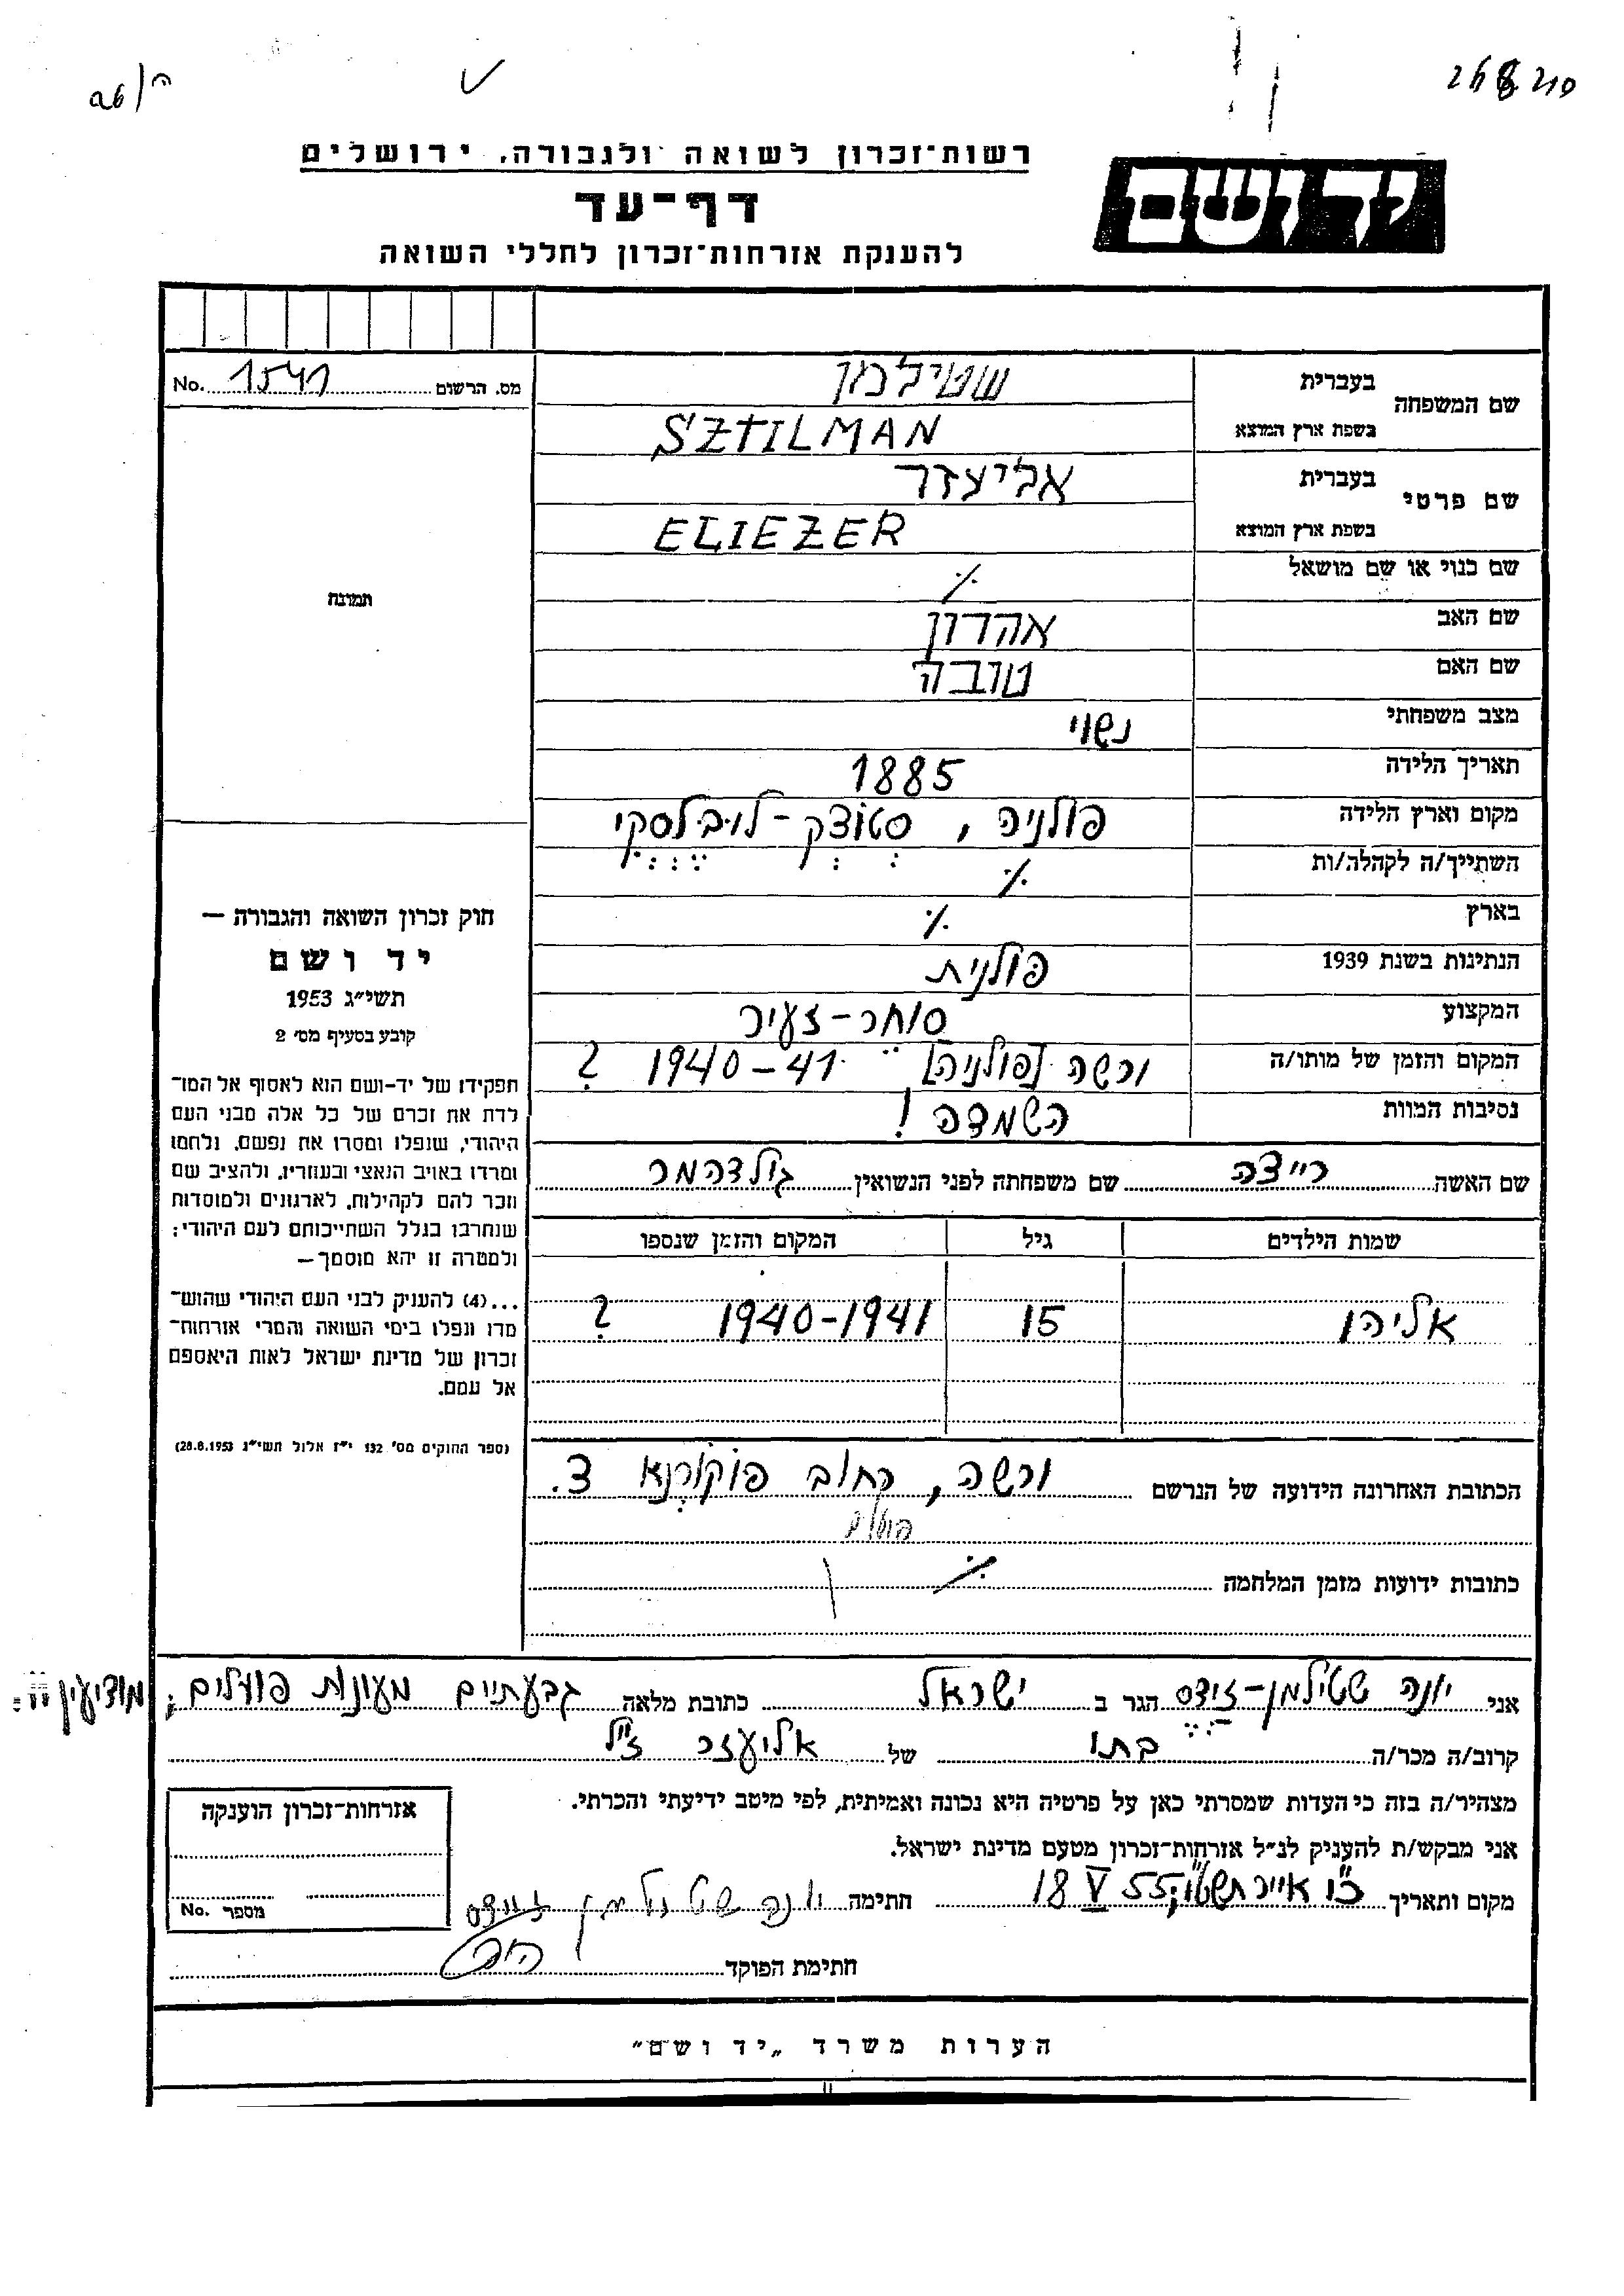 יד ושם
רשות־זכרון לשואה ולגבורה, ירושלים
דף־עד
להענקת אזרחות־זכרון לחללי השואה
מס. הרשום 1541 No.
שם המשפחה
בעברית שטילמן
בשפת ארץ המוצא SZTILMAN
שם פרטי
בעברית אליעזר
בשפת ארץ המוצא ELIEZER
שם כנוי או שם מושאל ٪
שם האב אהרון
שם האם טובה
מצב משפחתי נשוי
תאריך הלידה 1885
מקום וארץ הלידה פולניה, סטוצק-לויבלסקי
השתייך/ה לקהלה/ות ٪
בארץ ٪
הנתינות בשנת 1939 פולנית
המקצוע סוחר-זעיר
המקום והזמן של מותו/ה ורשה [פולניה] 1940-41 ?
נסיבות המוות השמדה!
שם האשה רייצה שם משפחתה לפני הנשואין גולדהמר
שמות הילדים גיל המקום והזמן שנספו
אליהו 15 1940-1941 ?
הכתובת האחרונה הידועה של הנרשם ורשה, רחוב פוקורנא 3.
כתובות ידועות מזמן המלחמה ٪
תמונה
חוק זכרון השואה והגבורה —
יד ושם
תשי״ג 1953
קובע בסעיף מס׳ 2
תפקידו של יד-ושם הוא לאסוף אל המו־
לדת את זכרם של כל אלה מבני העם
היהודי, שנפלו ומסרו את נפשם, נלחמו
ומרדו באויב הנאצי ובעוזריו, ולהציב שם
וזכר להם לקהילות, לארגונים ולמוסדות
שנחרבו בגלל השתייכותם לעם היהודי;
ולמטרה זו יהא מוסמך—
...(4) להעניק לבני העם היהודי שהוש־
מדו ונפלו בימי השואה והמרי אזרחות־
זכרון של מדינת ישראל לאות היאספם
אל עמם.
(ספר החוקים מס׳ 132 י״ז אלול תשי״ג 28.8.1953)
אני יונה שטילמן-זידס הגר ב ישראל כתובת מלאה גבעתיים מעונות פועלים; מודיעין
קרוב/ה מכר/ה בתו של אליעזר ז״ל
מצהיר/ה בזה כי העדות שמסרתי כאן על פרטיה היא נכונה ואמיתית, לפי מיטב ידיעתי והכרתי.
אני מבקש/ת להעניק לנ״ל אזרחות־זכרון מטעם מדינת ישראל.
מקום ותאריך כ"ו אייר תשט"ו 18 V 55 חתימה יונה שטילמן זידס
חתימת הפוקד
אזרחות־זכרון הוענקה
מספר No.
הערות משרד „יד ושם״